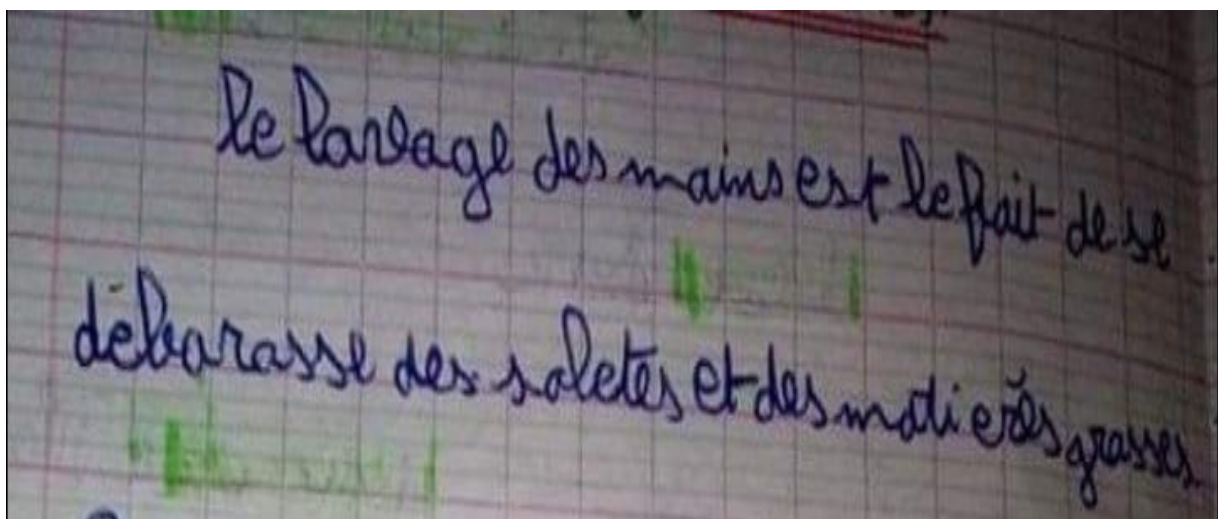 le lavage des mains est le fait de se
débarasse des saletés et des matières grasses